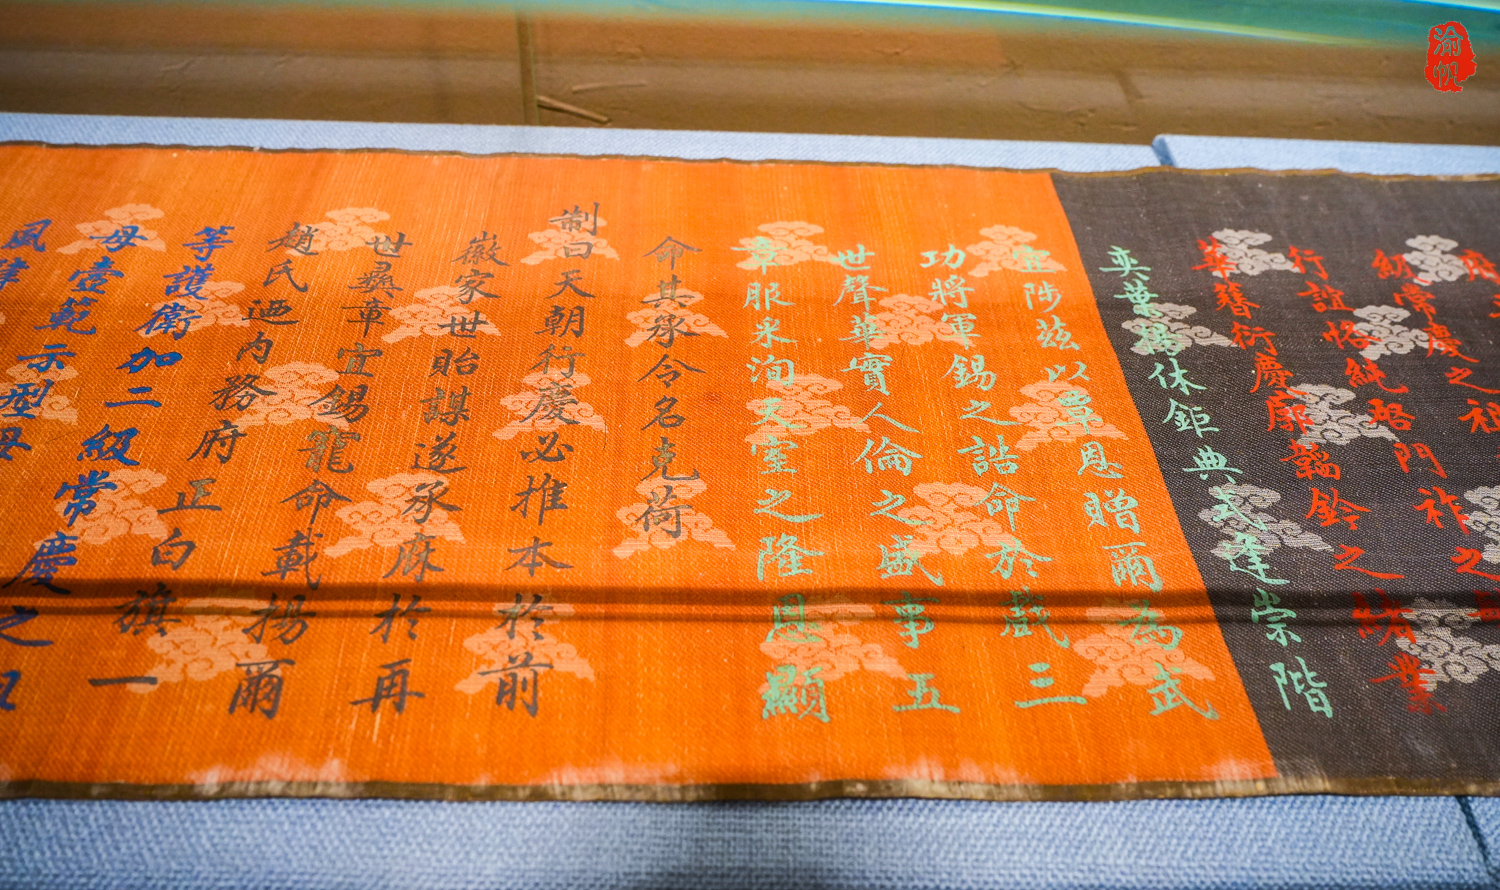 常慶之祖
行誼恪純啟門祚之
華簪衍慶廓韜鈐之緒業
奕葉揚休鉅典式逢崇階
宜陟茲以覃恩贈爾為武
功將軍錫之誥命於戲三
世聲華實人倫之盛事五
章服采洵天室之隆恩顯
命其承令名克荷
制曰天朝行慶必推本於前
徽家世貽謀遂承庥於再
世彞章宜錫寵命載揚爾
趙氏迺內務府正白旗一
等護衛加二級常慶之祖
母壼範示型母
風
渝帆